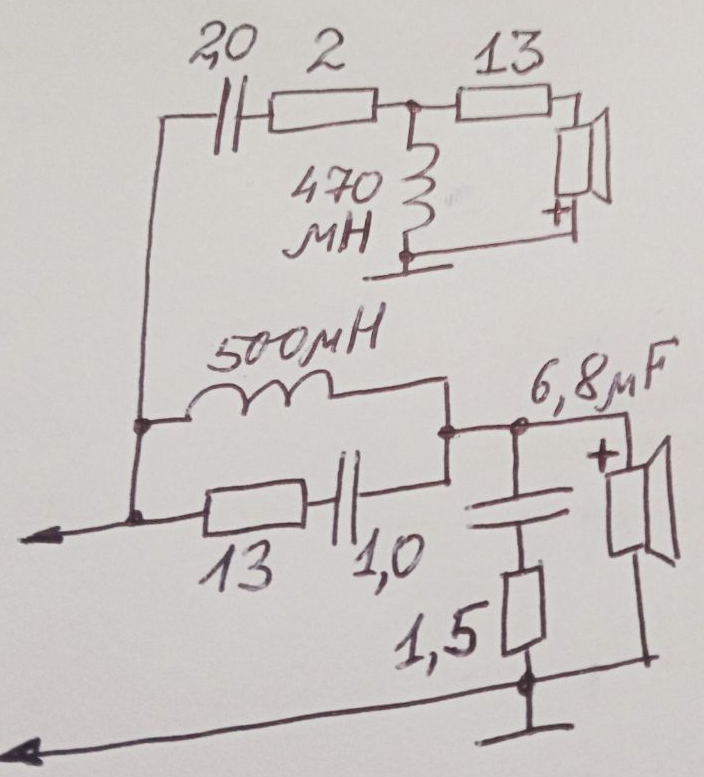 2,0 2 13
470
μH
+
500μH
6,8μF
+
13 1,0
1,5